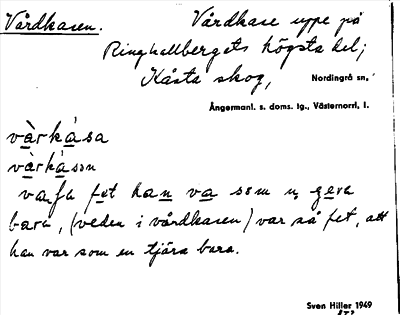 Vårdkasen. Vårdkase uppe på
Ringkallbergets högsta del;
Kåsta skog, Nordingrå sn,
Ångermanl. s. doms. lg., Västernorrl. l.
vàrkása
vàrkásɐn
fet han va som
bara, (veden i vårdkasen) var så fet, att
han var som en tjära bara.
Sven Hiller 1949